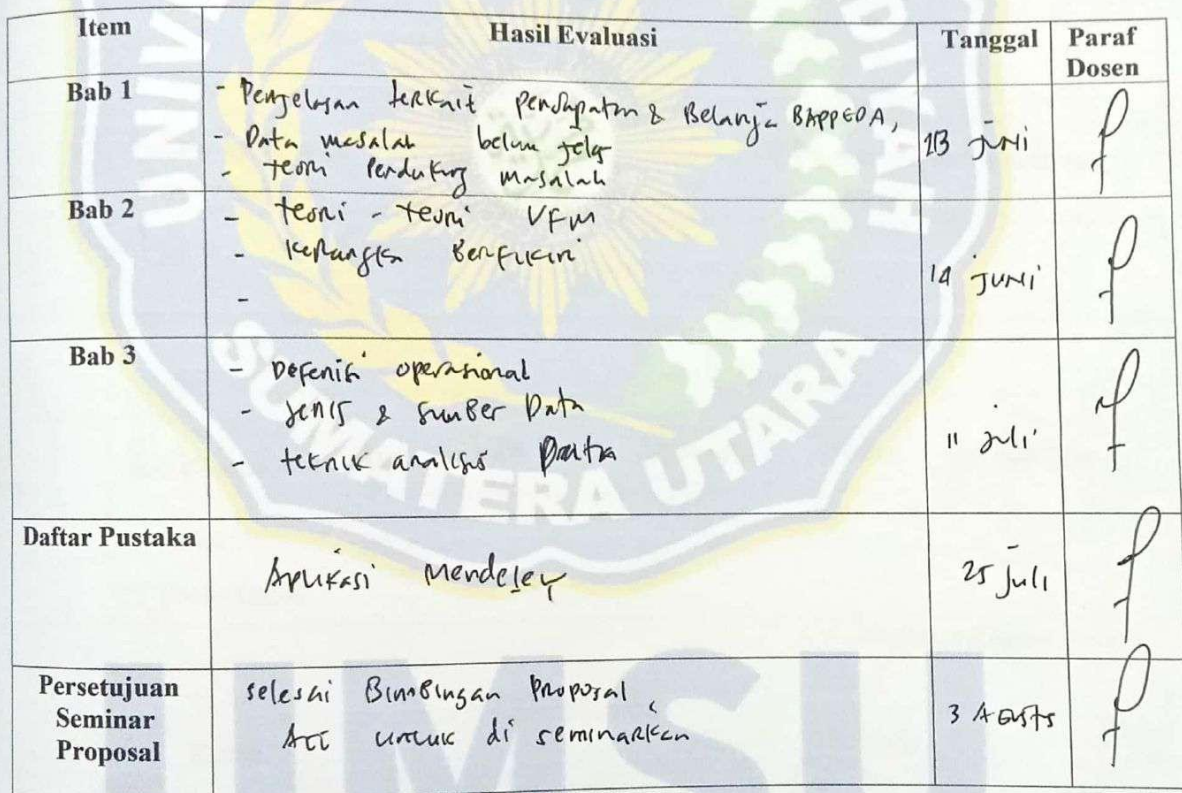 Item Hasil Evaluasi Tanggal Paraf Dosen
Bab 1
- Penjelasan terkait pendapatan & Belanja BAPPEDA,
- Data masalah belum jelas
- teori Pendukung masalah
13 juni
Bab 2
- teori - teori VFM
- kerangka Berfikir
-
14 juni
Bab 3
- Defenisi operasional
- Jenis & sumber Data
- teknik analisis Data
11 juli
Daftar Pustaka
Aplikasi Mendeley
25 juli
Persetujuan Seminar Proposal
selesai Bimbingan Proposal,
Acc untuk di seminarkan
3 Agusts
SUMATERA UTARA
UMSU